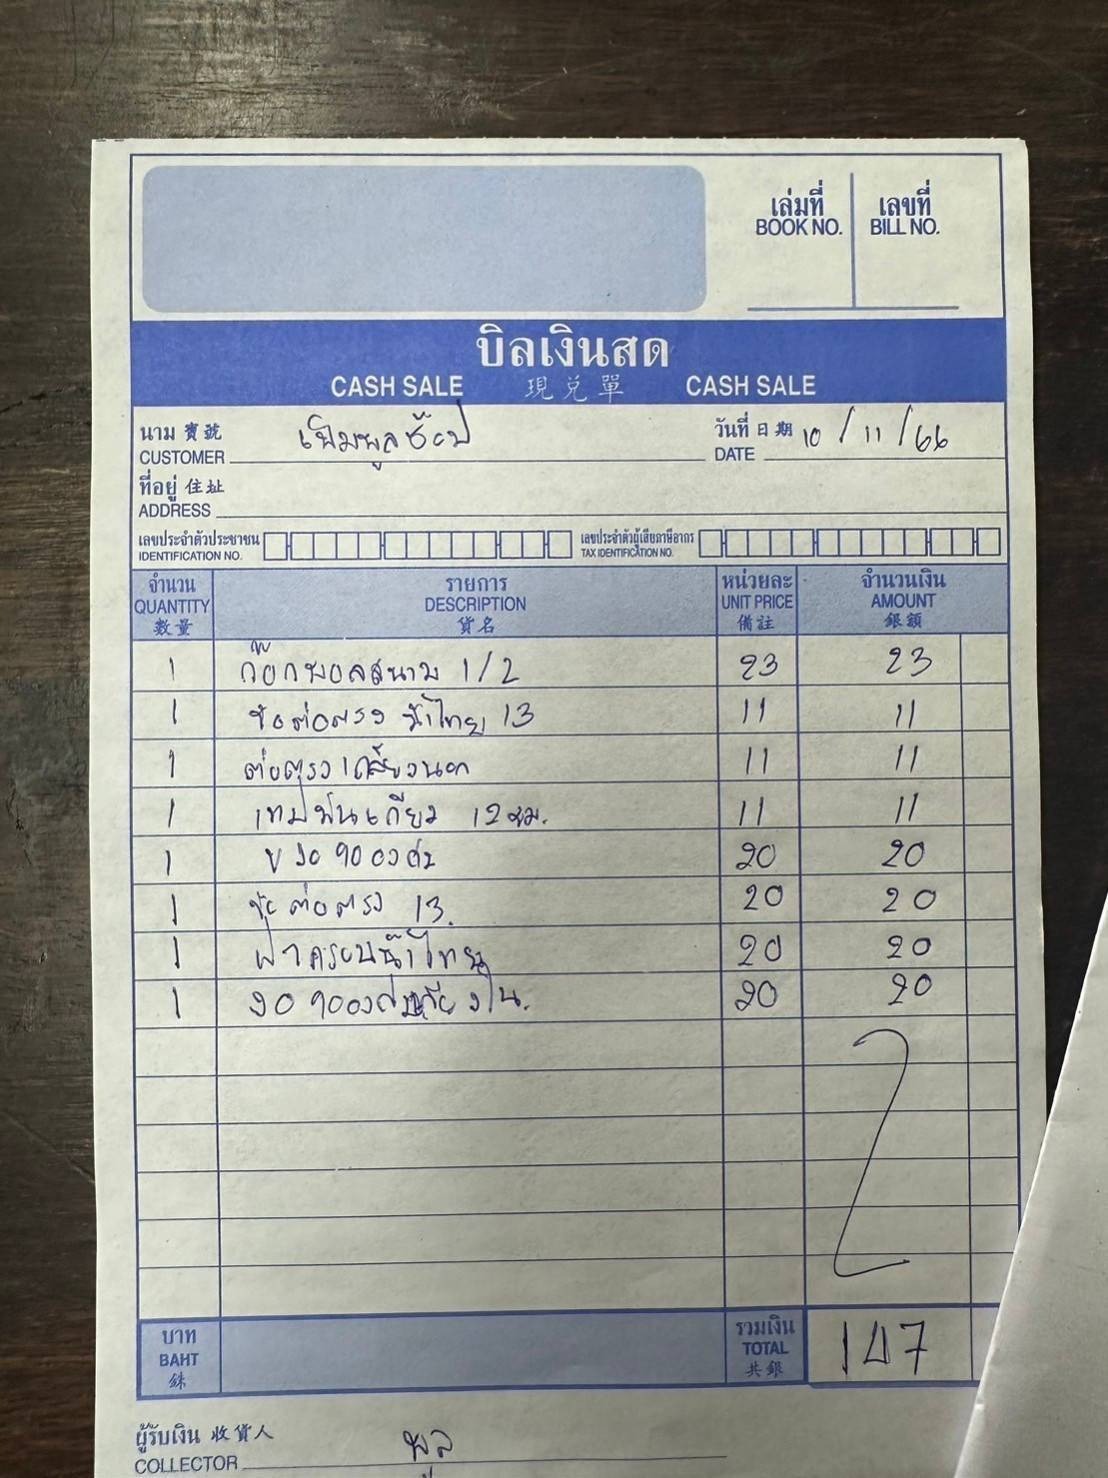 เล่มที่ เลขที่
BOOK NO. BILL NO.
บิลเงินสด
CASH SALE 現兌單 CASH SALE
นาม 寶號 เพิ่มพูลช๊อป วันที่ 日期 10/11/66
CUSTOMER DATE
ที่อยู่ 住址
ADDRESS
เลขประจำตัวประชาชน เลขประจำตัวผู้เสียภาษีอากร
IDENTIFICATION NO. TAX IDENTIFICATION NO.
จำนวน รายการ หน่วยละ จำนวนเงิน
QUANTITY DESCRIPTION UNIT PRICE AMOUNT
数量 貨名 備註 銀額
1 ก๊อกบอลสนาม 1/2 23 23
1 ข้อต่อตรง น้ำไทย 13 11 11
1 ต่อตรงเกลียวนอก 11 11
1 เทปพันเกลียว 12 มม. 11 11
1 ข้องอ 90 องศา 20 20
1 ข้อต่อตรง 13 20 20
1 ฝาครอบน้ำไทย 20 20
1 งอ 90 องศาเกลียวใน 20 20
บาท รวมเงิน
BAHT TOTAL 147
銖 共銀
ผู้รับเงิน 收貨人 พูล
COLLECTOR